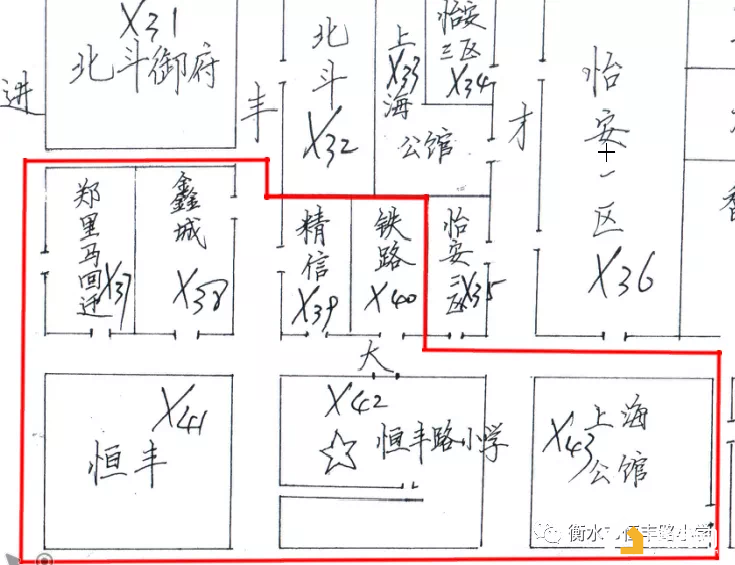 X31
北斗御府
进
丰
北斗
X32
上海公馆
X33
怡安三区
X34
才
怡安一区
X36
郑里马回迁
X37
鑫城
X38
精信
X39
铁路
X40
怡安二区
X35
大
X41
恒丰
X42
恒丰路小学
X43
上海公馆